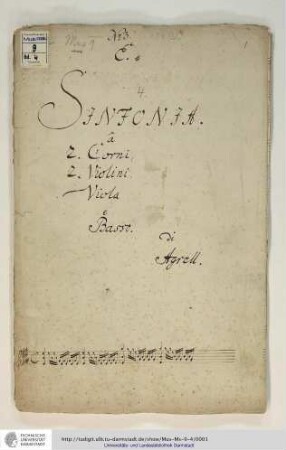 9
E.
4.
SINFONIA.
à
2. Corni,
2. Violini
Viola
e
Basso.
di
Agrell.
TECHNISCHE
UNIVERSITÄT
DARMSTADT
http://tudigit.ulb.tu-darmstadt.de/show/Mus-Ms-9-4/0001
Universitäts- und Landesbibliothek Darmstadt